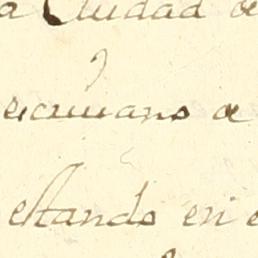 a Ciudad de
escriuano de
estando en e